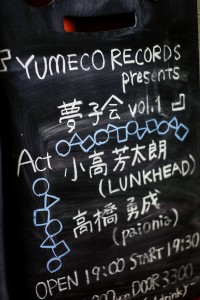 『YUMECO RECORDS
presents
夢子会 vol.1』
Act 小高芳太朗
(LUNKHEAD)
高橋勇成
(paionia)
OPEN 19:00 START 19:30
DOOR 3300